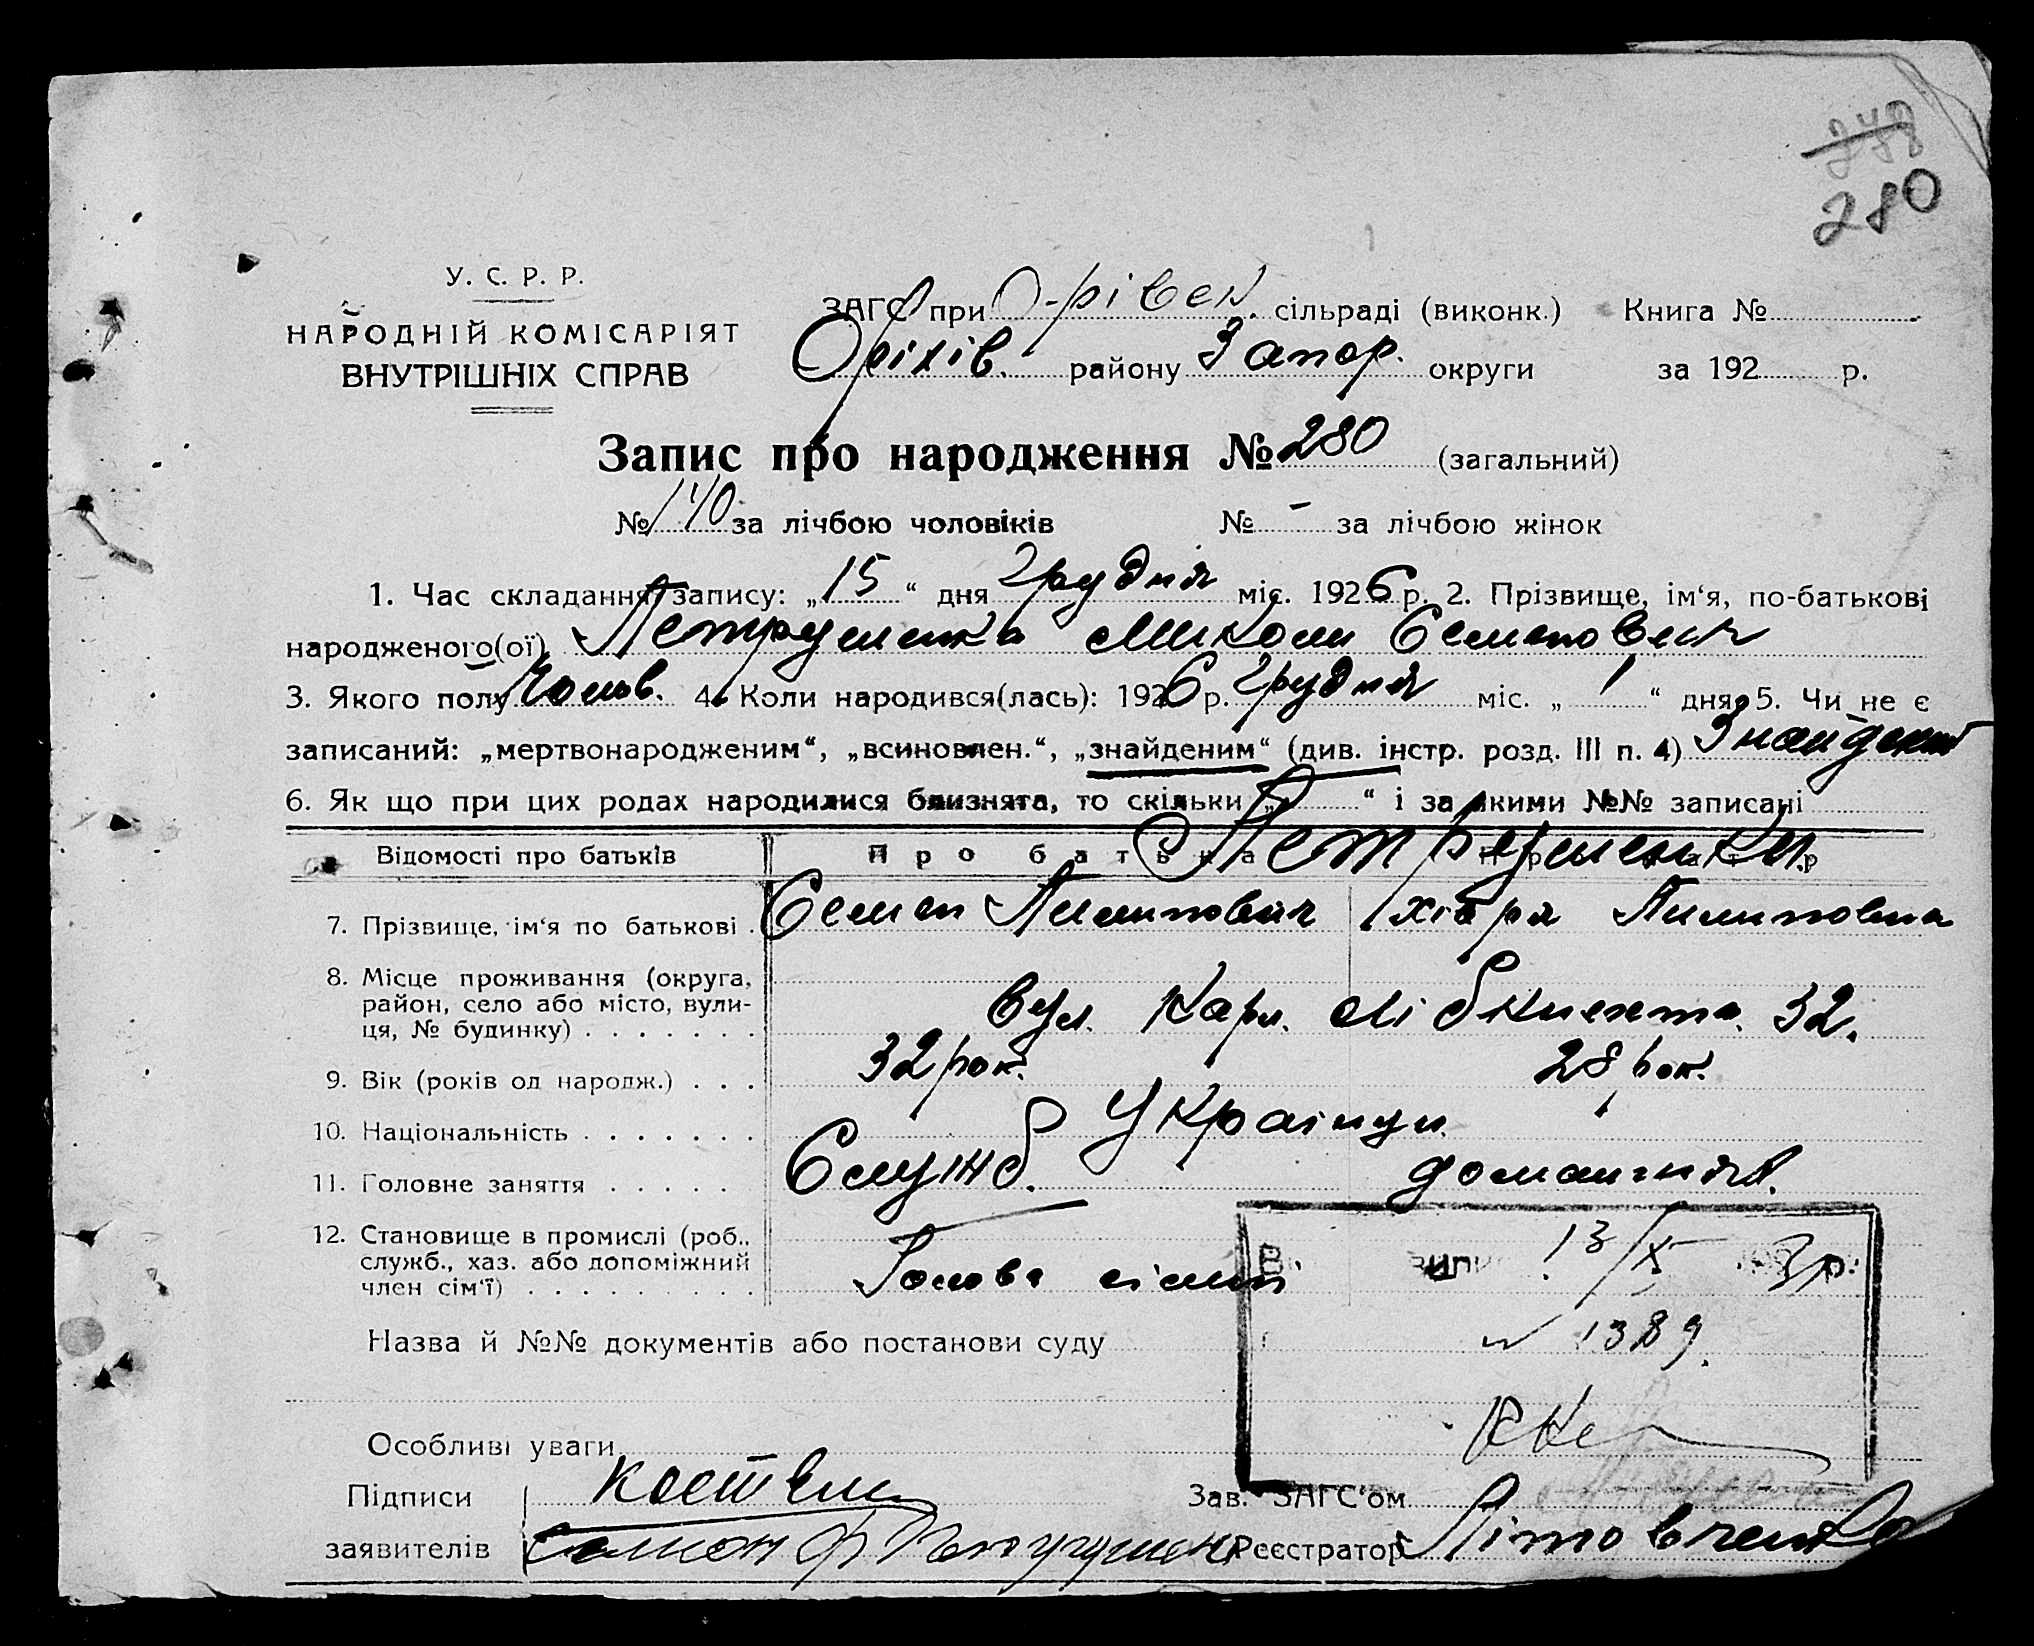 248
280
У. С. Р. Р.
НАРОДНІЙ КОМІСАРІЯТ
ВНУТРІШНІХ СПРАВ
ЗАГС при Орівек. сільраді (виконк.) Книга №
Оріхів. району Запор. округи за 192 р.
Запис про народження № 280 (загальний)
№ 140 за лічбою чоловіків № - за лічбою жінок
1. Час складання запису: „15“ дня Грудня міс. 1926 р. 2. Прізвище, ім‘я, по-батькові
народженого(ої) Петрушенка Микола Семенович
3. Якого полу Чолов. 4. Коли народився(лась): 1926 р. Грудня міс. „1“ дня 5. Чи не є
записаний: „мертвонародженим“, „всиновлен.“, „знайденим“ (див. інстр. розд. III п. 4) Знайдений
6. Як що при цих родах народилися близнята, то скільки „ “ і за якими №№ записані
Відомості про батьків Про батька Петрушенки
7. Прізвище, ім‘я по батькові . Семен Пилипович Пилиповна
8. Місце проживання (округа,
район, село або місто, вули-
ця, № будинку) . . . . . . . вул. Карл. Лібкнехта. 32.
9. Вік (років од народж.) . . . 32 рок. 28 рок.
10. Національність . . . . . . . Українци
11. Головне заняття . . . . . Служб. домашня
12. Становище в промислі (роб.,
служб., хаз. або допоміжний
член сім‘ї) . . . . . . . . . Голова сімьи
13/X 3 р.
Назва й №№ документів або постанови суду
№ 1389.
Особливі уваги
Підписи Зав. ЗАГС‘ом
заявителів Реєстратор Літовченко